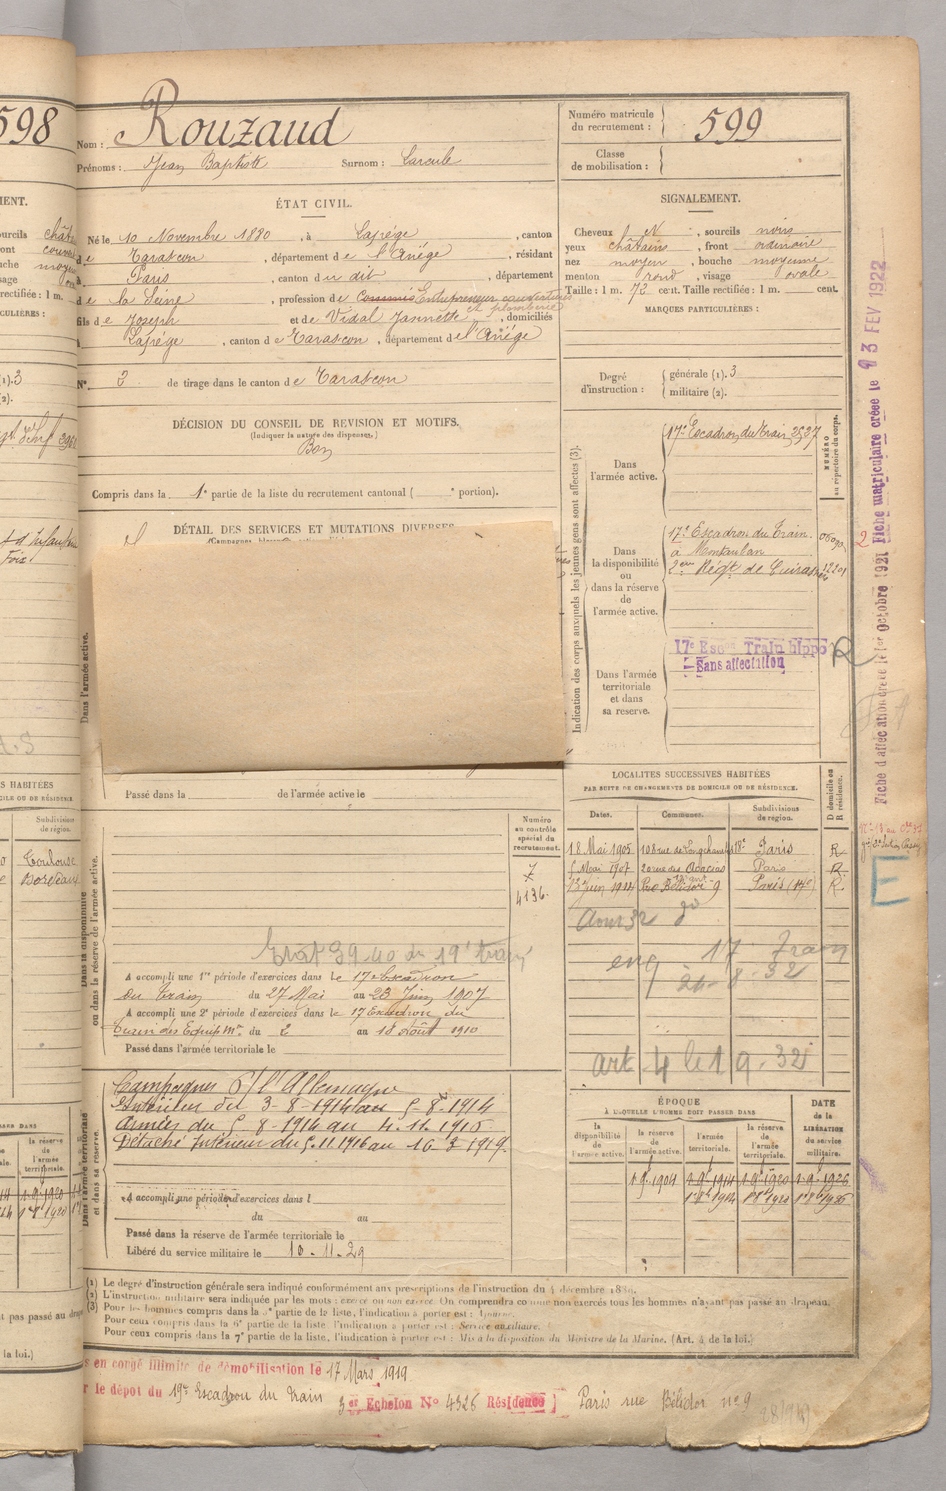 598
Nom : Rouzaud
Prénoms : Jean Baptiste Surnom :
Numéro matricule du recrutement : 599
Classe de mobilisation :
ÉTAT CIVIL.
Né le 10 Novembre 1880, à Lapège, canton
de Tarascon, département de l'Ariège, résidant
à Paris, canton du dit, département
de la Seine, profession de Commis Entrepreneur couvertures
et plomberie
fils de Joseph et de Vidal Jannette, domiciliés
à Lapège, canton de Tarascon, département de l'Ariège
N° 3 de tirage dans le canton de Tarascon
DÉCISION DU CONSEIL DE REVISION ET MOTIFS.
(Indiquer la nature des dispenses.)
Bon
Compris dans la 1e partie de la liste du recrutement cantonal ( e portion).
DÉTAIL DES SERVICES ET MUTATIONS DIVERSES
SIGNALEMENT.
Cheveux N, sourcils noirs
yeux châtain, front ordinaire
nez moyen, bouche moyenne
menton rond, visage ovale
Taille : 1 m. 72 cent. Taille rectifiée : 1 m. cent.
MARQUES PARTICULIÈRES :
Degré d'instruction : générale (1). 3
militaire (2).
Indication des corps auxquels les jeunes gens sont affectés (3).
NUMÉRO au répertoire du corps.
Dans l'armée active.
17e Escadron du Train 2537
Dans la disponibilité ou dans la réserve de l'armée active.
17e Escadron du Train
à Montauban
2eme Régt de Cuirassiers
Dans l'armée territoriale et dans sa réserve.
17e Esc Train hippo
Sans affectation
R
Fiche d'affectation créée le 1er Octobre 1921 Fiche matriculaire créée le 13 FEV 1922
Dans l'armée active.
Passé dans la de l'armée active le
Numéro au contrôle spécial du recrutement.
4136
Dans la disponibilité ou dans la réserve de l'armée active.
A accompli une 1re période d'exercices dans le 17 Escadron
du Train du 27 Mai au 23 Juin 1907
A accompli une 2e période d'exercices dans le 17 Escadron du
Train des Equip. Mres du 2 au 18 Août 1910
Passé dans l'armée territoriale le
LOCALITÉS SUCCESSIVES HABITÉES
PAR SUITE DE CHANGEMENTS DE DOMICILE OU DE RÉSIDENCE.
Dates. Communes. Subdivisions de région. D domicile ou R résidence.
18 Mai 1905 108 rue de Longchamp 16e Paris R
5 Mai 1907 20 rue des Acacias Paris R
Rue Bélidor 9 Paris (17e) R
Août 32
eng 17 Train
26-8-32
art 4 le 1 9-32
E
Dans l'armée territoriale et dans sa réserve.
Campagnes c/ l'Allemagne
Intérieur du 3-8-1914 au 5-8-1914
Armées du 5-8-1914 au 4.11.1916
Détaché Intérieur du 5.11.1916 au 16-3-1919.
A accompli une période d'exercices dans l
du au
Passé dans la réserve de l'armée territoriale le
Libéré du service militaire le 10-11-29
ÉPOQUE
À LAQUELLE L'HOMME DOIT PASSER DANS
la disponibilité de l'armée active. la réserve de l'armée active. l'armée territoriale. la réserve de l'armée territoriale.
DATE de la LIBÉRATION du service militaire.
1-9-1904 1-9-1914 1-9-1920 1-9-1926
(1) Le degré d'instruction générale sera indiqué conformément aux prescriptions de l'instruction du 4 décembre 1889.
(2) L'instruction militaire sera indiquée par les mots : exercé ou non exercé. On comprendra comme non exercés tous les hommes n'ayant pas passé au drapeau.
(3) Pour les hommes compris dans la 5e partie de la liste, l'indication à porter est : Ajourné.
Pour ceux compris dans la 6e partie de la liste, l'indication à porter est : Service auxiliaire.
Pour ceux compris dans la 7e partie de la liste, l'indication à porter est : Mis à la disposition du Ministre de la Marine. (Art. 4 de la loi.)
s en congé illimité de démobilisation le 17 Mars 1919
r le dépôt du 19e Escadron du Train 3er Echelon N° 4326 Résidence Paris rue Bélidor n° 9